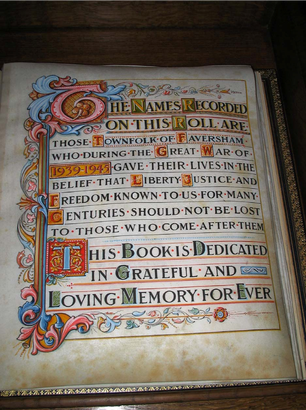 THE NAMES RECORDED
ON THIS ROLL ARE
THOSE TOWNFOLK OF FAVERSHAM
WHO DURING THE GREAT WAR OF
1939-1945 GAVE THEIR LIVES IN THE
BELIEF THAT LIBERTY JUSTICE AND
FREEDOM KNOWN TO US FOR MANY
CENTURIES SHOULD NOT BE LOST
TO THOSE WHO COME AFTER THEM
THIS BOOK IS DEDICATED
IN GRATEFUL AND
LOVING MEMORY FOR EVER